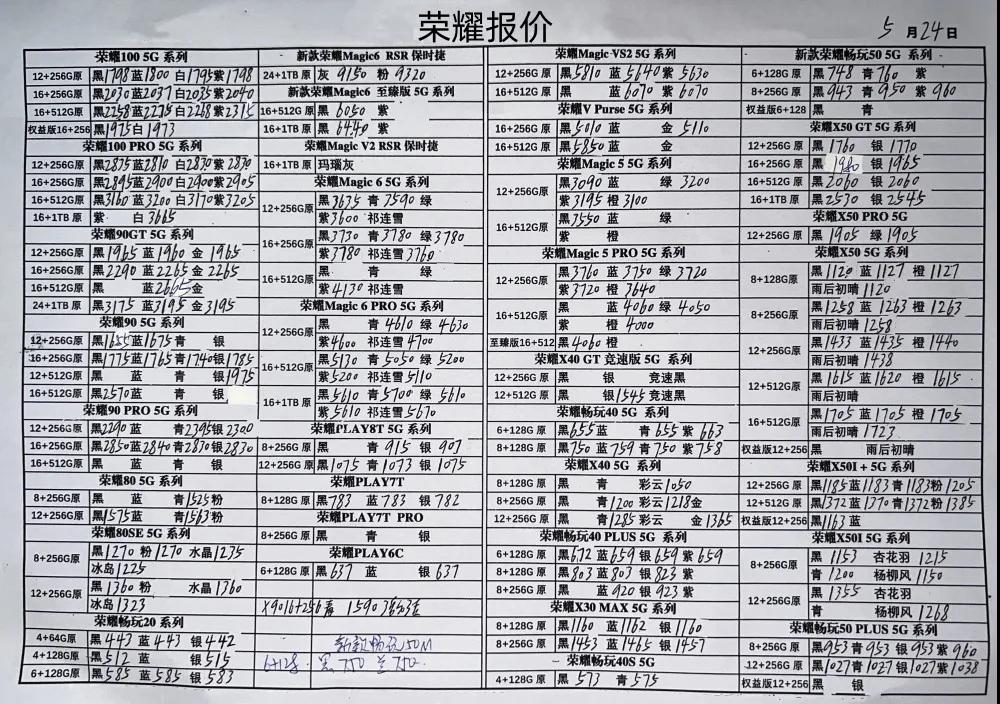 荣耀报价
5月24日
荣耀100 5G 系列
12+256G原 黑1798 蓝1800 白1795 紫1798
16+256G原 黑2030 蓝2037 白2035 紫2040
16+512G原 黑2258 蓝2275 白2268 紫2315
权益版16+256 黑1975 白1973
荣耀100 PRO 5G 系列
12+256G原 黑2875 蓝2810 白2830 紫2830
16+256G原 黑2895 蓝2900 白2900 紫2905
16+512G原 黑3160 蓝3200 白3170 紫3205
16+1TB 原 紫 白3665
荣耀90GT 5G 系列
12+256G原 黑1965 蓝1960 金1965
16+256G原 黑2290 蓝2265 金2265
16+512G原 黑 蓝2665 金
24+1TB 原 黑3175 蓝3195 金3195
荣耀90 5G 系列
12+256G原 黑1655 蓝1675 青 银
16+256G原 黑1775 蓝1765 青1740 银1785
12+512G原 黑 蓝 青 银1975
16+512G原 黑2570 蓝 青 银
荣耀90 PRO 5G 系列
12+256G原 黑2290 蓝 青2395 银2300
16+256G原 黑2850 蓝2840 青2830 银2830
16+512G原 黑 蓝 青 银
荣耀80 5G 系列
8+256G原 黑 蓝 青1525 粉
12+256G原 黑1575 蓝 青1563 粉
荣耀80SE 5G 系列
8+256G原 黑1270 粉1270 水晶1235
冰岛1225
12+256G原 黑1360 粉 水晶1360
冰岛1323
荣耀畅玩20 系列
4+64G原 黑443 蓝443 银442
4+128G原 黑512 蓝 银515
6+128G原 黑585 蓝585 银583
新款荣耀Magic6 RSR 保时捷
24+1TB 原 灰9150 粉9320
新款荣耀Magic6 至臻版 5G 系列
16+512G原 黑6050 紫
16+1TB 原 黑6440 紫
荣耀Magic V2 RSR 保时捷
16+1TB 原 玛瑙灰
荣耀Magic 6 5G 系列
12+256G原 黑3635 青3590 绿
紫3600 祁连雪
16+256G原 黑3730 青3780 绿3780
紫3780 祁连雪3760
16+512G原 黑 青 绿
紫4130 祁连雪
荣耀Magic 6 PRO 5G 系列
12+256G原 黑 青4610 绿4630
紫4600 祁连雪4700
16+512G原 黑5130 青5050 绿5200
紫5200 祁连雪5110
16+1TB 原 黑5610 青5700 绿5610
紫5610 祁连雪5670
荣耀PLAY8T 5G 系列
8+256G原 黑 青915 银907
12+256G原 黑1075 青1073 银1075
荣耀PLAY7T
8+128G原 黑783 蓝783 银782
荣耀PLAY7T PRO
8+256G原 黑 青 银
荣耀PLAY6C
6+128G原 黑637 蓝 银637
X90 16+256 1590
畅玩50M
6+128 黑750 兰750
荣耀Magic VS2 5G 系列
12+256G原 黑5810 蓝5640 紫5630
16+512G原 黑 蓝6070 紫6070
荣耀V Purse 5G 系列
16+256G原 黑5010 蓝 金5110
16+512G原 黑5850 蓝 金
荣耀Magic 5 5G 系列
12+256G原 黑3090 蓝 绿3200
紫3195 橙3100
16+512G原 黑3550 蓝 绿
紫 橙
荣耀Magic 5 PRO 5G 系列
12+256G原 黑3760 蓝3750 绿3720
紫3720 橙3640
16+512G原 黑 蓝4060 绿4050
紫 橙4000
至臻版16+512 黑4060 橙
荣耀X40 GT 竞速版 5G 系列
12+256G原 黑 银 竞速黑
12+512G原 黑 银1545 竞速黑
荣耀畅玩40 5G 系列
6+128G原 黑655 蓝 青655 紫663
8+128G原 黑750 蓝759 青750 紫758
荣耀X40 5G 系列
8+128G原 黑 青 彩云1050
8+256G原 黑 青1200 彩云1218 金
12+256G原 黑 青1285 彩云 金1365
荣耀畅玩40 PLUS 5G 系列
6+128G原 黑672 蓝659 银659 紫659
8+128G原 黑803 蓝803 银825 紫
8+256G原 黑 蓝920 银923 紫
荣耀X30 MAX 5G 系列
8+128G原 黑1160 蓝1162 银1160
8+256G原 黑1453 蓝1465 银1457
荣耀畅玩40S 5G
4+128G原 黑573 青575
新款荣耀畅玩50 5G 系列
6+128G原 黑748 青760 紫
8+256G原 黑943 青950 紫960
权益版6+128 黑 青
荣耀X50 GT 5G 系列
12+256G原 黑1760 银1770
16+256G原 黑1940 银1965
16+512G原 黑2060 银2060
16+1TB原 黑2530 银2545
荣耀X50 PRO 5G
12+256G原 黑1905 绿1905
荣耀X50 5G 系列
8+128G原 黑1120 蓝1127 橙1127
雨后初晴1120
8+256G原 黑1258 蓝1263 橙1263
雨后初晴1258
12+256G原 黑1433 蓝1435 橙1440
雨后初晴1438
12+512G原 黑1615 蓝1620 橙1615
雨后初晴
16+512G原 黑1705 蓝1705 橙1705
雨后初晴1723
权益版12+256 黑 雨后初晴
荣耀X50I + 5G 系列
12+256G原 黑1185 蓝1183 青1183 粉1205
12+512G原 黑1372 蓝1370 青1372 粉1385
权益版12+256 黑1163 蓝
荣耀X50I 5G 系列
8+256G原 黑1153 杏花羽1215
青1200 杨柳风1150
12+256G原 黑1355 杏花羽
青 杨柳风1268
荣耀畅玩50 PLUS 5G 系列
8+256G原 黑953 青953 银953 紫960
12+256G原 黑1027 青1027 银1027 紫1038
权益版12+256 黑 银